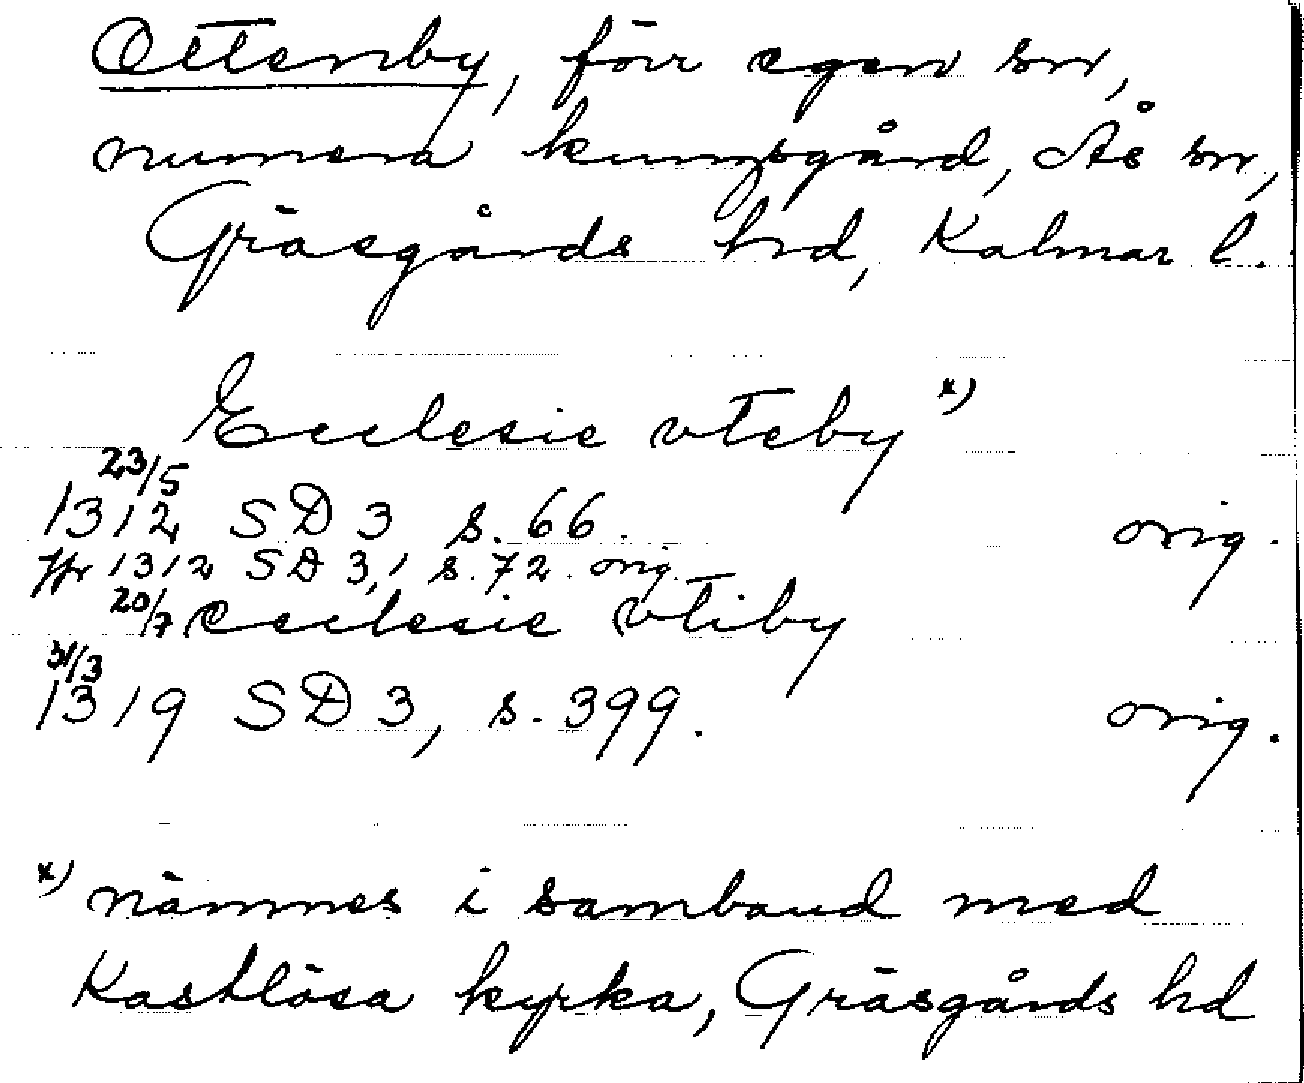 Ottenby, förr egen sn,
numera kungsgård, Ås sn,
Gräsgårds hd, Kalmar l.
Ecclesie vteby x)
23/5
1312 SD 3 s. 66. orig.
Jfr 1312 SD 3,1 s. 72. orig.
20/7 ecclesie vtiby
31/3
1319 SD 3, s. 399. orig.
x) nämnes i samband med
Kastlösa kyrka, Gräsgårds hd